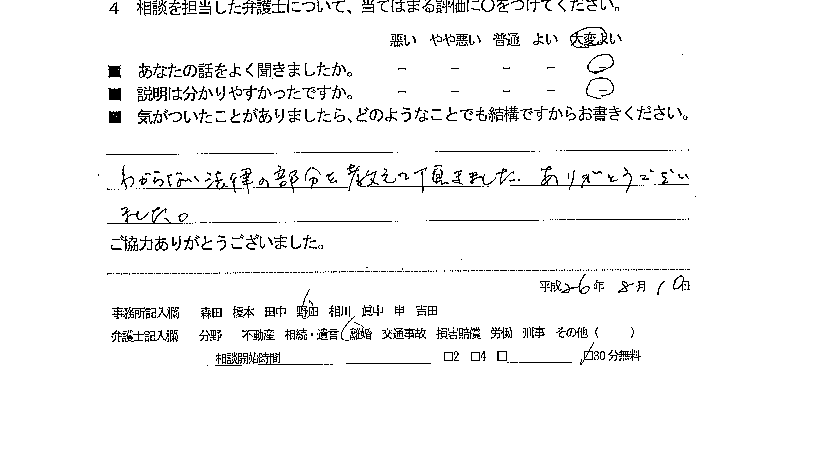 4 相談を担当した弁護士について、当てはまる評価に○をつけてください。
悪い やや悪い 普通 よい 大変よい
■ あなたの話をよく聞きましたか。 − − − − −
■ 説明は分かりやすかったですか。 − − − − −
■ 気がついたことがありましたら、どのようなことでも結構ですからお書きください。
わからない法律の部分を教えて頂きました。ありがとうござい
ました。
ご協力ありがとうございました。
平成26年8月10日
事務所記入欄 森田 榎本 田中 野田 相川 田中 申 吉田
弁護士記入欄 分野 不動産 相続・遺言 離婚 交通事故 損害賠償 労働 刑事 その他（ ）
相談開始時間 □2 □4 □ □30分無料